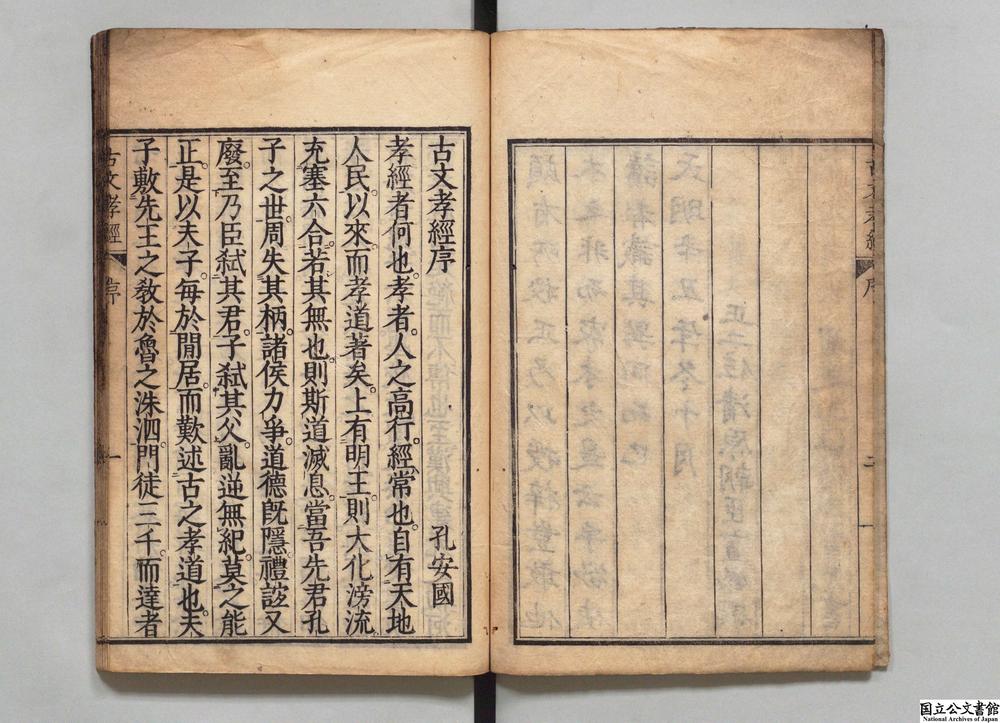 古文孝經序 孔安國
孝經者何也。孝者。人之高行。經。常也。自有天地
人民。以來。而孝道著矣。上有明王。則大化滂流。
充塞六合。若其無也。則斯道滅息。當吾先君孔
子之世。周失其柄。諸侯力爭。道德既隱。禮誼又
廢。至乃臣弑其君。子弑其父。亂逆無紀。莫之能
正。是以夫子。每於閒居。而歎述古之孝道也。夫
子敷先王之敎於魯之洙泗。門徒三千。而達者
古文孝經 序 一
国立公文書館
National Archives of Japan